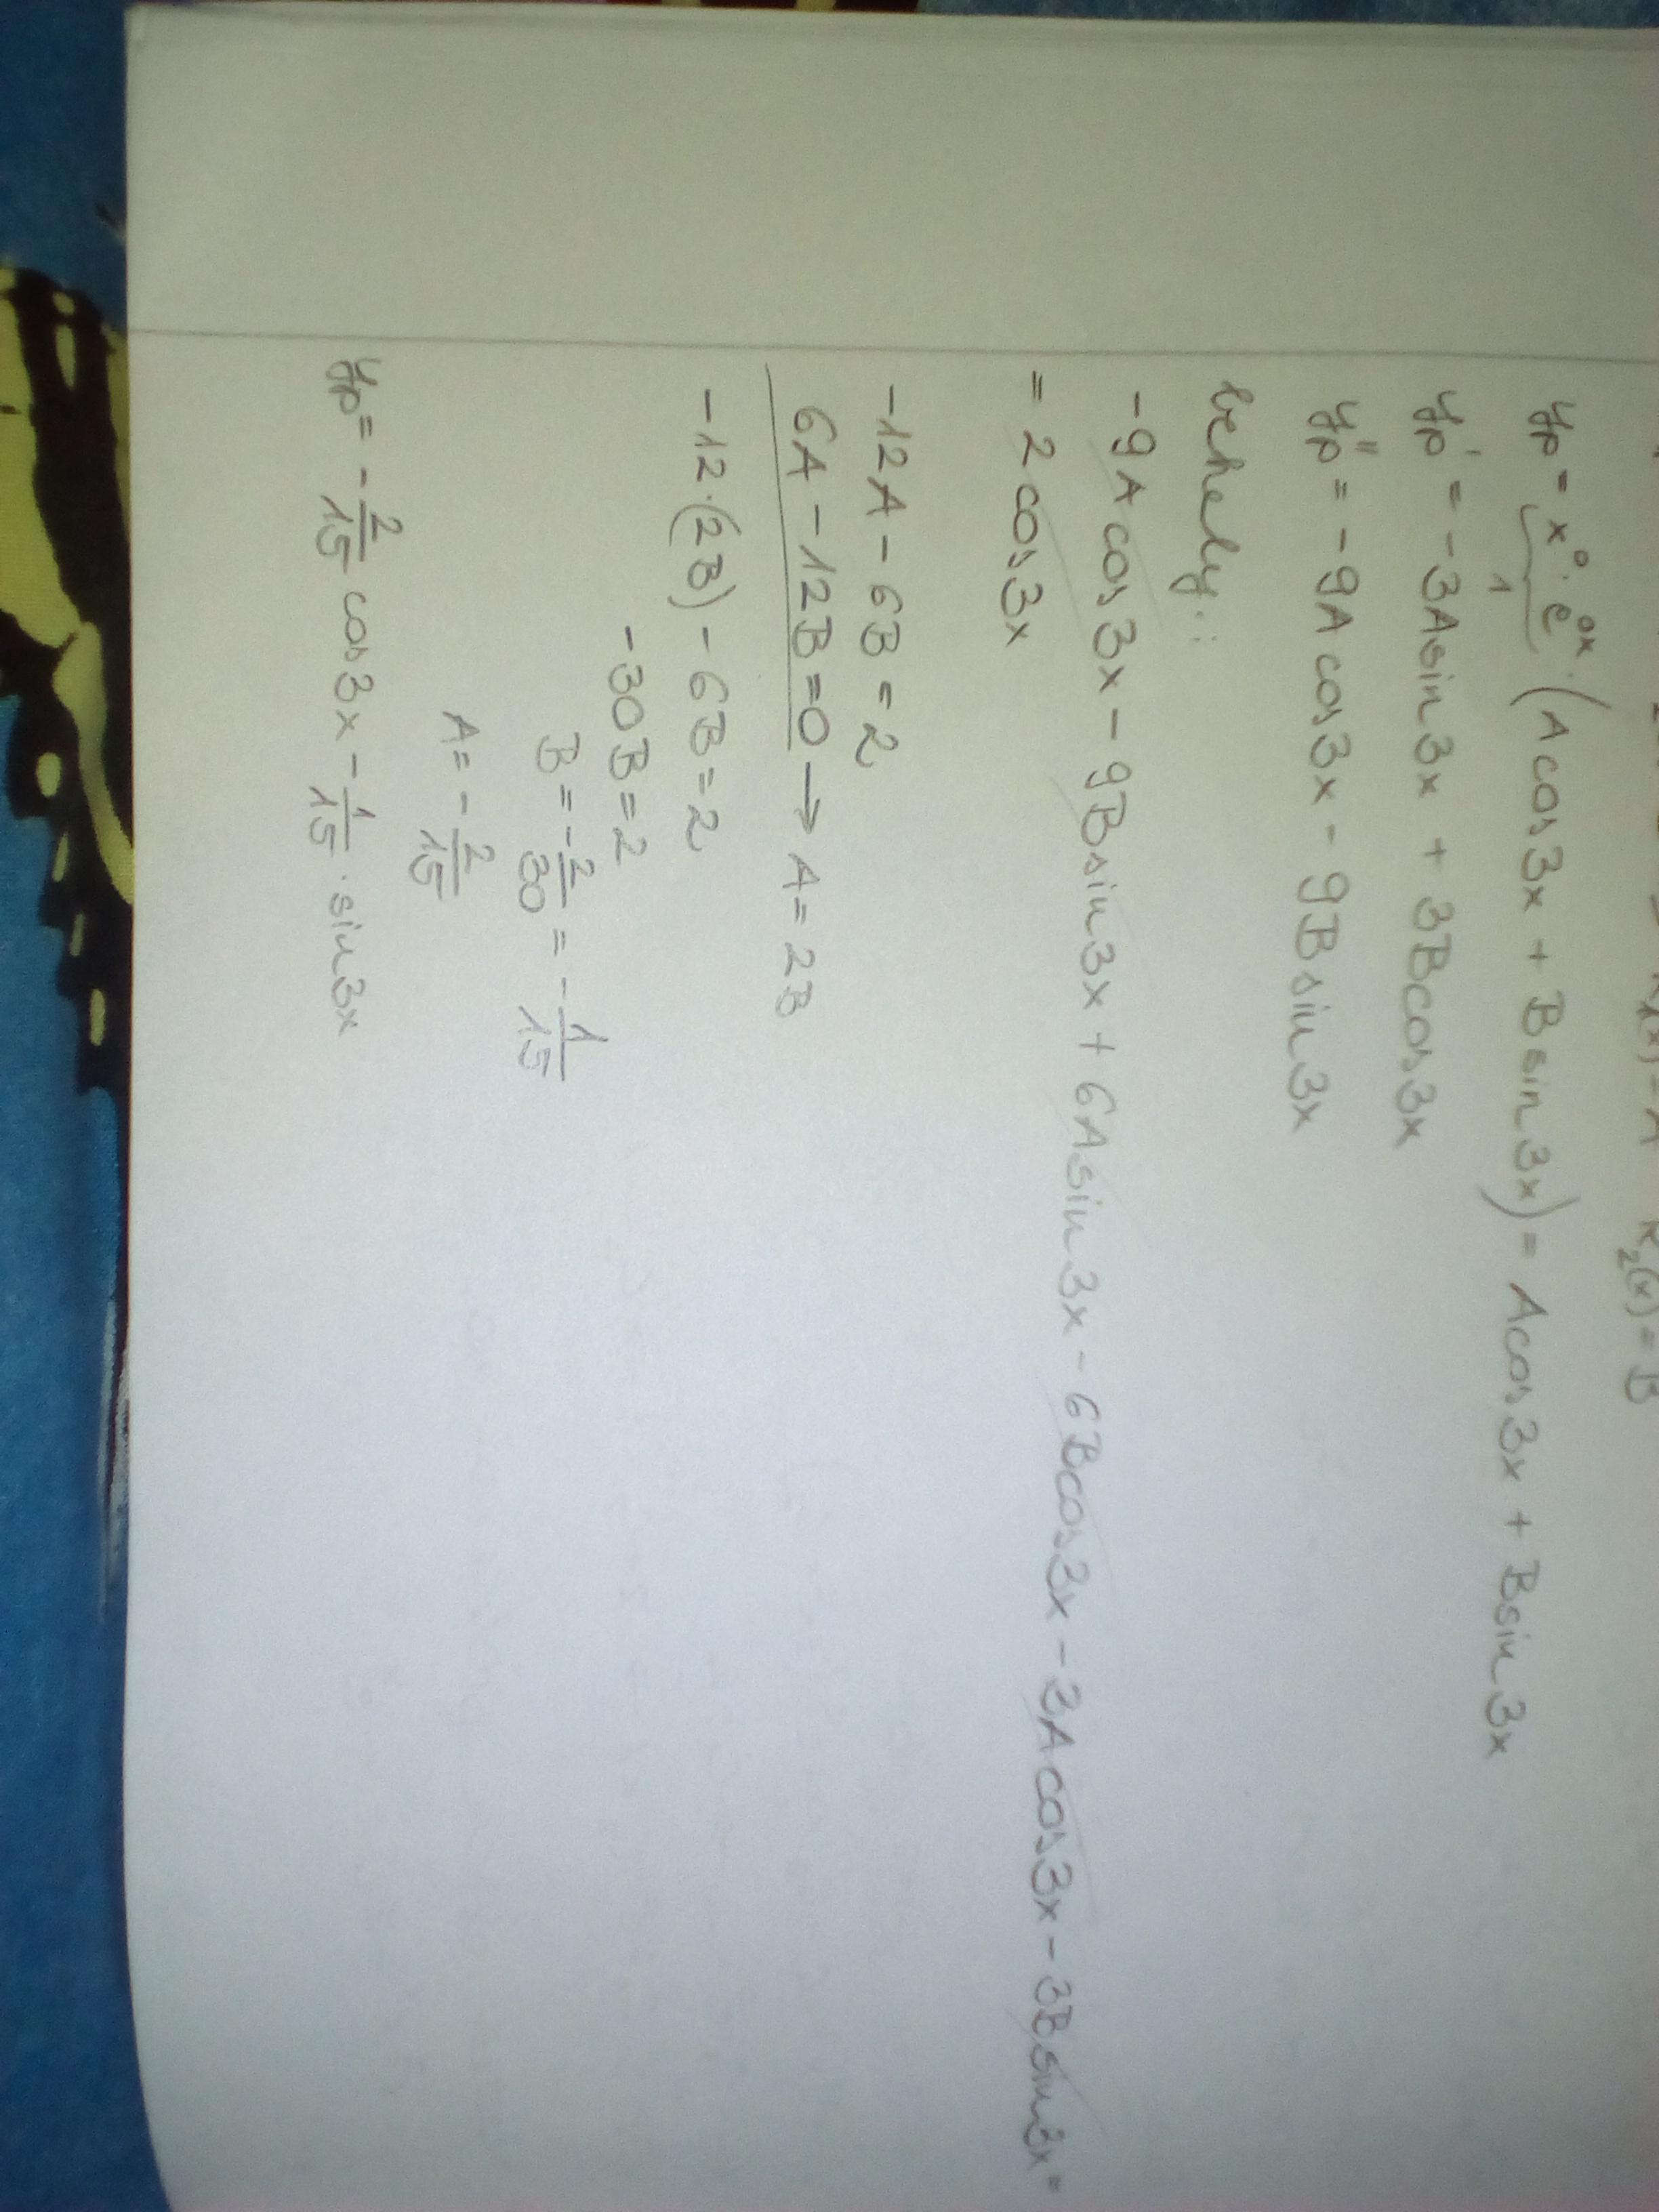 R₁(x) = A R₂(x) = B
yp = x⁰ · e⁰ˣ · (A cos 3x + B sin 3x) = A cos 3x + B sin 3x
1
yp' = -3A sin 3x + 3B cos 3x
yp'' = -9A cos 3x - 9B sin 3x
behely.:
-9A cos 3x - 9B sin 3x + 6A sin 3x - 6B cos 3x - 3A cos 3x - 3B sin 3x =
= 2 cos 3x
-12A - 6B = 2
6A - 12B = 0 → A = 2B
-12·(2B) - 6B = 2
-30B = 2
B = -2/30 = -1/15
A = -2/15
yp = -2/15 cos 3x - 1/15 · sin 3x